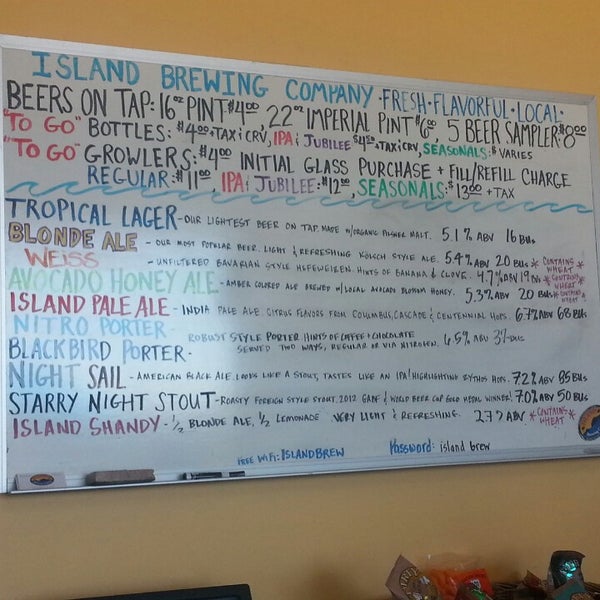 ISLAND BREWING COMPANY · FRESH · FLAVORFUL · LOCAL ·
BEERS ON TAP: 16oz PINT $4.00, 22oz IMPERIAL PINT $6.00, 5 BEER SAMPLER: $8.00
"TO GO" BOTTLES: $4.00 + TAX & CRV, IPA & JUBILEE $4.50 + TAX & CRV, SEASONALS: $ VARIES
"TO GO" GROWLERS: $4.00 INITIAL GLASS PURCHASE + FILL/REFILL CHARGE
REGULAR: $11.00, IPA & JUBILEE: $12.00, SEASONALS: $13.00 + TAX
TROPICAL LAGER - OUR LIGHTEST BEER ON TAP. MADE W/ORGANIC PILSNER MALT. 5.1% ABV 16 BUs
BLONDE ALE - OUR MOST POPULAR BEER. LIGHT & REFRESHING KÖLSCH STYLE ALE. 5.4% ABV 20 BUs * CONTAINS WHEAT *
WEISS - UNFILTERED BAVARIAN STYLE HEFEWEIZEN. HINTS OF BANANA & CLOVE. 4.7% ABV * CONTAINS WHEAT *
AVOCADO HONEY ALE - AMBER COLORED ALE BREWED W/LOCAL AVOCADO BLOSSOM HONEY. 5.3% ABV 20 BUs * CONTAINS WHEAT *
ISLAND PALE ALE - INDIA PALE ALE. CITRUS FLAVORS FROM COLUMBUS, CASCADE & CENTENNIAL HOPS. 6.7% ABV 68 BUs
NITRO PORTER - ROBUST STYLE PORTER. HINTS OF COFFEE + CHOCOLATE
BLACKBIRD PORTER - SERVED TWO WAYS, REGULAR OR VIA NITROGEN. 6.5% ABV BUs
NIGHT SAIL - AMERICAN BLACK ALE. LOOKS LIKE A STOUT, TASTES LIKE AN IPA! HIGHLIGHTING KYTHOS HOPS. 7.2% ABV 85 BUs
STARRY NIGHT STOUT - ROASTY FOREIGN STYLE STOUT. 2012 GABF & WORLD BEER CUP GOLD MEDAL WINNER! 7.0% ABV 50 BUs
ISLAND SHANDY - 1/2 BLONDE ALE, 1/2 LEMONADE. VERY LIGHT & REFRESHING. 2.7% ABV. * CONTAINS WHEAT *
FREE WIFI: ISLANDBREW Password: island brew